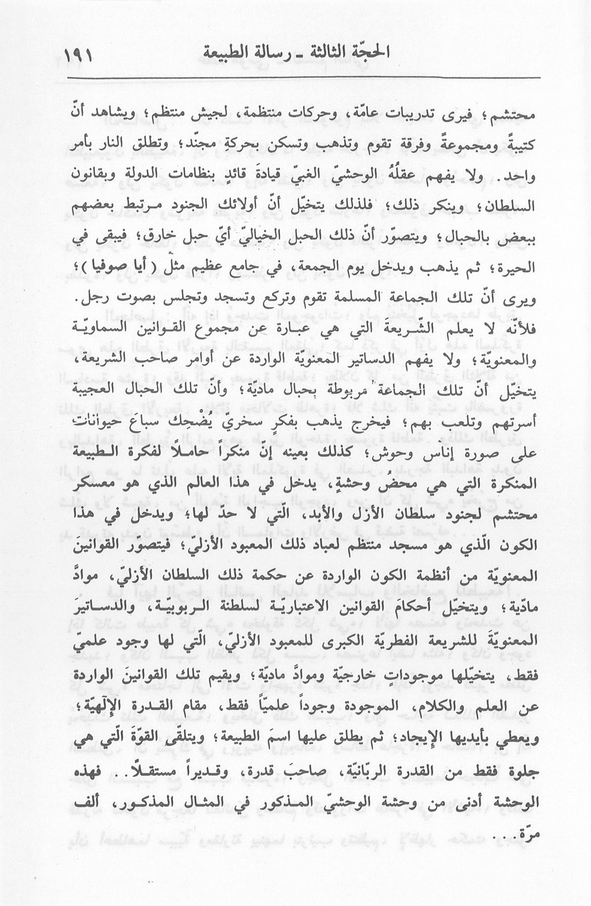 الحجّة الثالثة - رسالة الطبيعة ١٩١
محتشم؛ فيرى تدريبات عامّة، وحركات منتظمة، لجيش منتظم؛ ويشاهد أنّ
كتيبةً ومجموعةً وفرقة تقوم وتذهب وتسكن بحركةِ مجنّد؛ وتطلق النار بأمر
واحد. ولا يفهم عقلُهُ الوحشيّ الغبيّ قيادةَ قائدٍ بنظامات الدولة وبقانون
السلطان؛ وينكر ذلك؛ فلذلك يتخيّل أنّ أولائك الجنود مرتبط بعضهم
ببعض بالحبال؛ ويتصوّر أنّ ذلك الحبل الخياليّ أيّ حبل خارق؛ فيبقى في
الحيرة؛ ثم يذهب ويدخل يوم الجمعة، في جامع عظيم مثل (أيا صوفيا)؛
ويرى أنّ تلك الجماعة المسلمة تقوم وتركع وتسجد وتجلس بصوت رجل.
فلأنّه لا يعلم الشّريعةَ التي هي عبارة عن مجموع القوانين السماويّة
والمعنويّة؛ ولا يفهم الدساتير المعنويّة الواردة عن أوامر صاحب الشريعة،
يتخيّل أنّ تلك الجماعة مربوطة بحبال ماديّة؛ وأنّ تلك الحبال العجيبة
أسرتهم وتلعب بهم؛ فيخرج يذهب بفكرٍ سخريّ يُضْحِك سباعَ حيوانات
على صورة إناس وحوش؛ كذلك بعينه إنّ منكراً حاملاً لفكرة الطبيعة
المنكرة التي هي محضُ وحشةٍ، يدخل في هذا العالم الذي هو معسكر
محتشم لجنود سلطان الأزل والأبد، الّتي لا حدّ لها؛ ويدخل في هذا
الكون الّذي هو مسجد منتظم لعباد ذلك المعبود الأزليّ؛ فيتصوّر القوانينَ
المعنويّة من أنظمة الكون الواردة عن حكمة ذلك السلطان الأزليّ، موادَّ
مادّية؛ ويتخيّل أحكامَ القوانين الاعتباريّـة لسلطنة الربوبيّة، والدساتيرَ
المعنويّةَ للشريعة الفطريّة الكبرى للمعبود الأزليّ، الّتي لها وجود علميّ
فقط، يتخيّلها موجوداتٍ خارجيّة وموادَّ ماديّة؛ ويقيم تلك القوانينَ الواردة
عن العلم والكلام، الموجودة وجوداً علميّاً فقط، مقام القدرة الإلٰهيّة؛
ويعطي بأيديها الإيجاد؛ ثم يطلق عليها اسمَ الطبيعة؛ ويتلقّى القوّةَ الّتي هي
جلوة فقط من القدرة الربّانيّة، صاحبَ قدرة، وقديراً مستقلاً.. فهذه
الوحشة أدنى من وحشة الوحشيّ المذكور في المثال المذكور، ألف
مرّة...